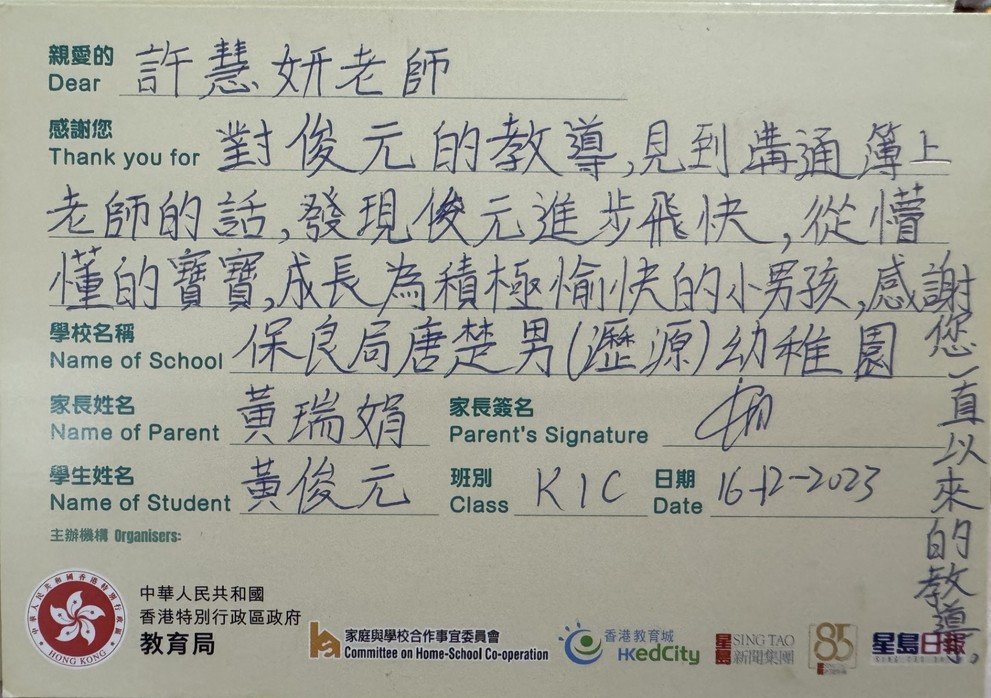 親愛的
Dear 許慧妍老師
感謝您
Thank you for 對俊元的教導,見到溝通簿上
老師的話,發現俊元進步飛快,從懵
懂的寶寶,成長為積極愉快的小男孩,感謝
您一直以來的教導。
學校名稱
Name of School 保良局唐楚男(瀝源)幼稚園
家長姓名
Name of Parent 黃瑞娟
家長簽名
Parent's Signature
學生姓名
Name of Student 黃俊元
班別
Class K1C
日期
Date 16-12-2023
主辦機構 Organisers:
中華人民共和國香港特別行政區
HONG KONG
中華人民共和國
香港特別行政區政府
教育局
家庭與學校合作事宜委員會
Committee on Home-School Co-operation
香港教育城
HKedCity
星島 SING TAO
新聞集團
85
星島日報
SING TAO DAILY